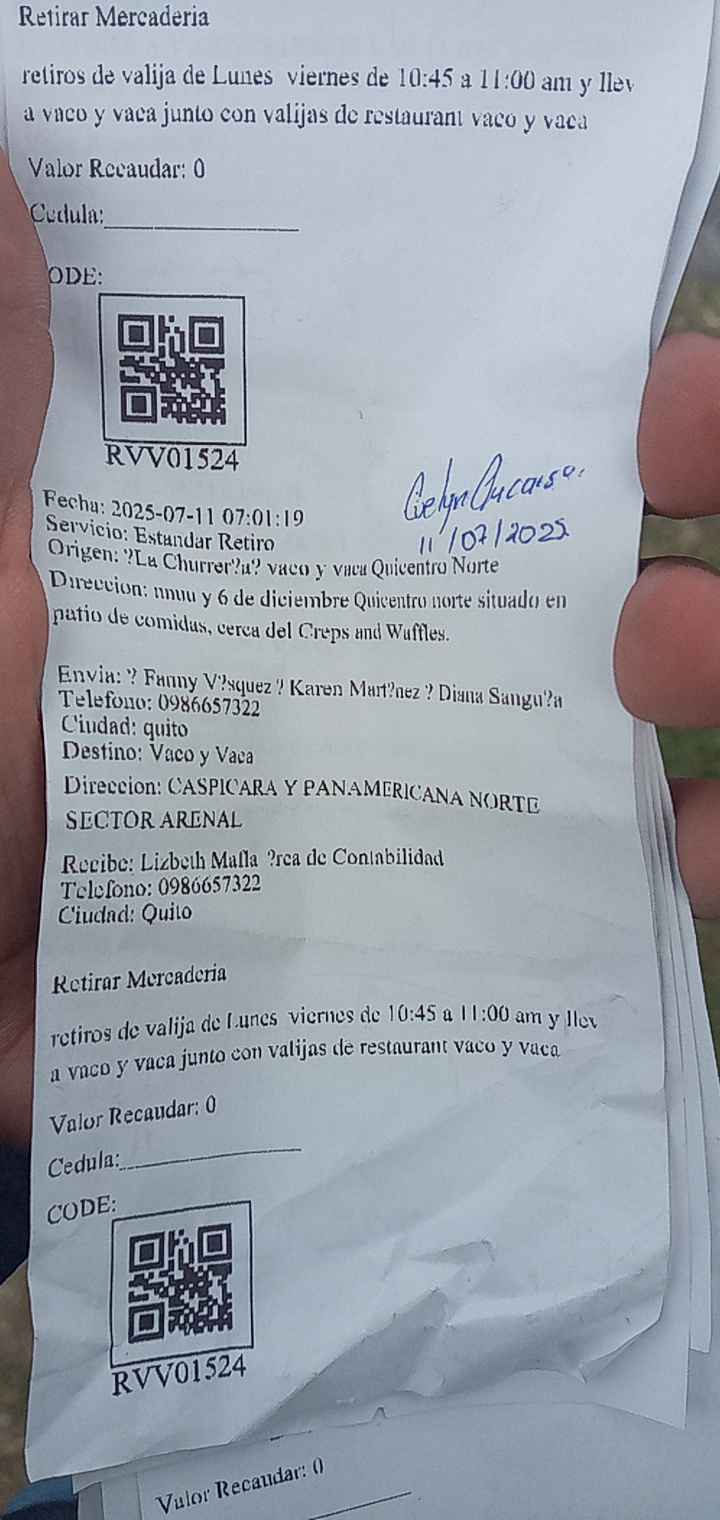 Retirar Mercaderia
retiros de valija de Lunes viernes de 10:45 a 11:00 am y llev
a vaco y vaca junto con valijas de restaurant vaco y vaca
Valor Recaudar: 0
Cedula:
ODE:
RVV01524
Fecha: 2025-07-11 07:01:19
Servicio: Estandar Retiro
Origen: ?La Churrer?a? vaco y vaca Quicentro Norte
Direccion: nnuu y 6 de diciembre Quicentro norte situado en
patio de comidas, cerca del Creps and Waffles.
Evelyn
11/07/2025
Envia: ? Fanny V?squez ? Karen Mart?nez ? Diana Sangu?a
Telefono: 0986657322
Ciudad: quito
Destino: Vaco y Vaca
Direccion: CASPICARA Y PANAMERICANA NORTE
SECTOR ARENAL
Recibe: Lizbeth Mafla ?rea de Contabilidad
Telefono: 0986657322
Ciudad: Quito
Retirar Mercaderia
retiros de valija de Lunes viernes de 10:45 a 11:00 am y llev
a vaco y vaca junto con valijas de restaurant vaco y vaca
Valor Recaudar: 0
Cedula:
CODE:
RVV01524
Valor Recaudar: 0